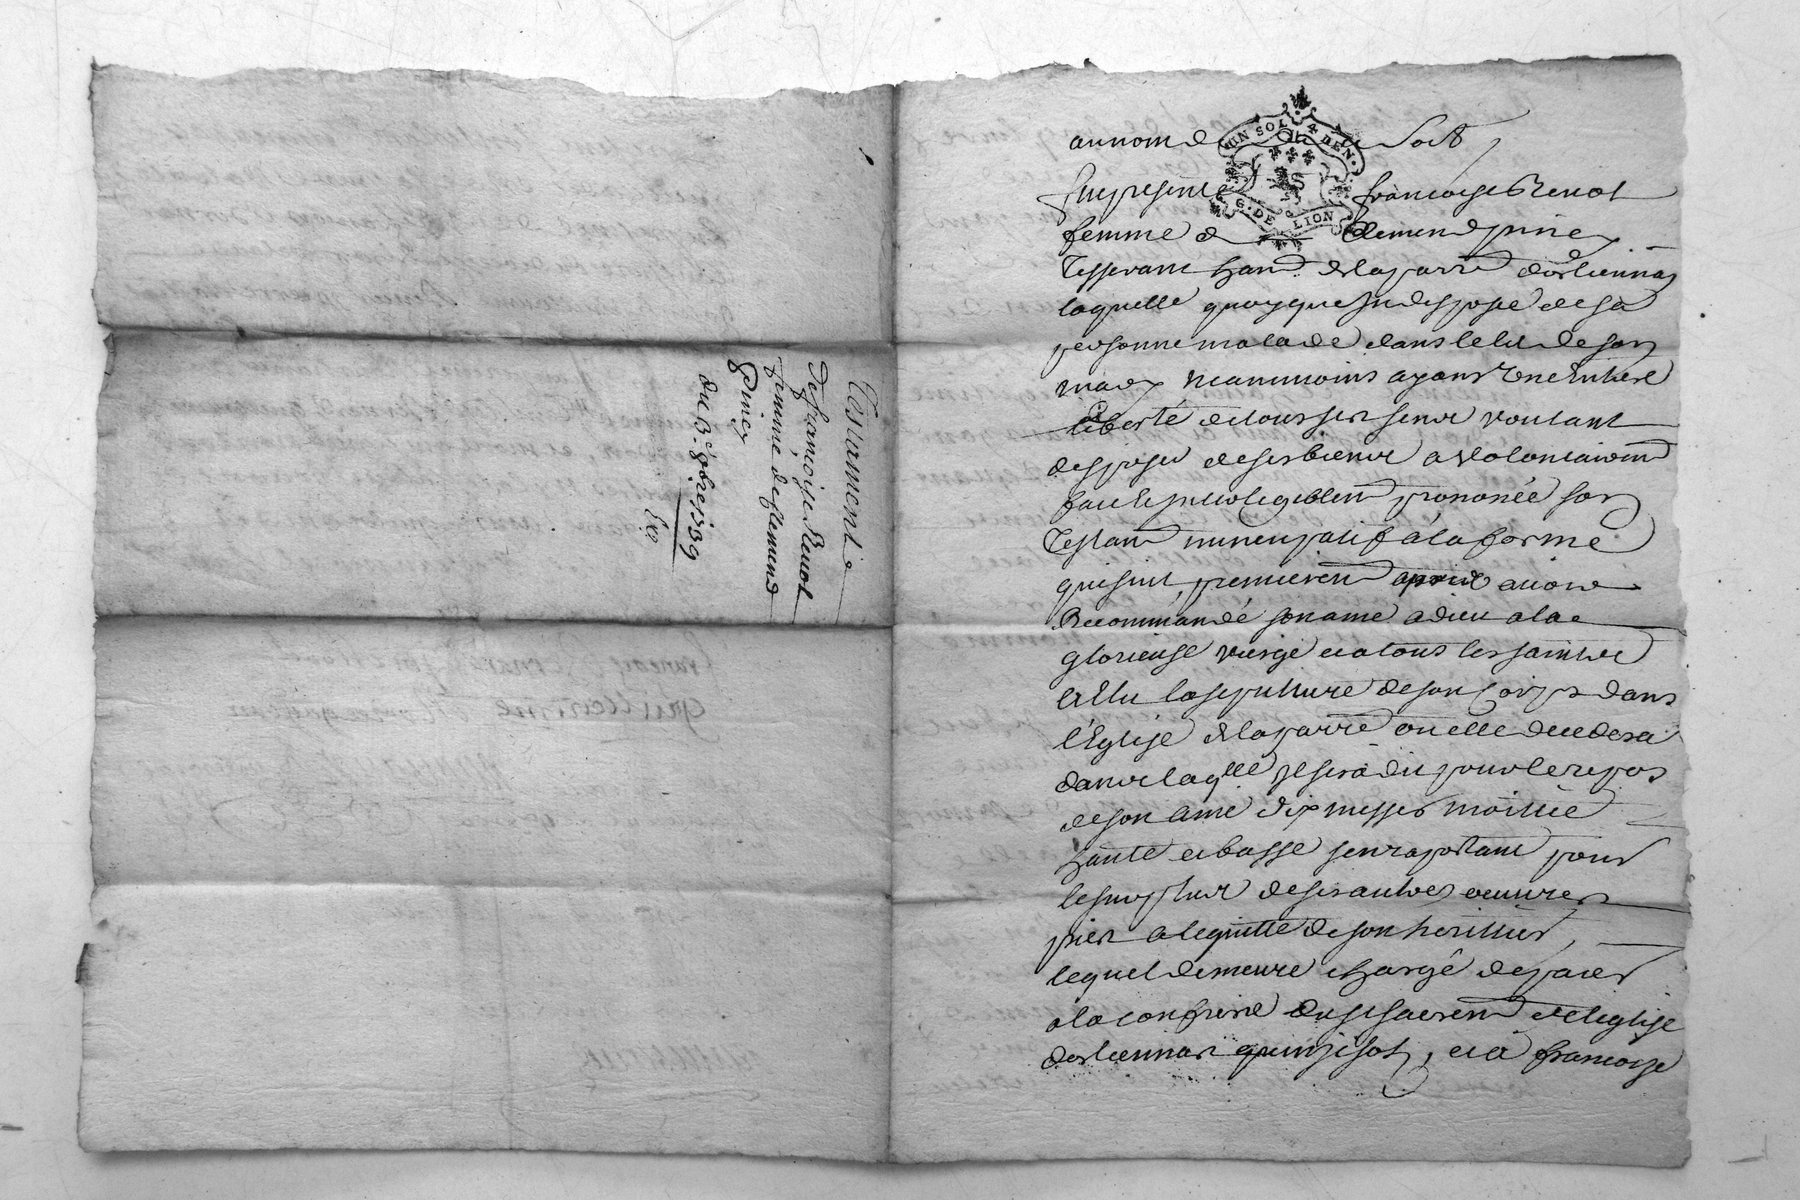 Testament
de françoise Renot
femme de clemend
Piney
du 3.e 9bre 1739
UN SOL 4 DEN.
G. DE LION
au nom de Dieu Soit
fut presente françoise Renot
femme de clemend pine
Tisserant hand de la parre dorliennas
laquelle quoyque Indisposée de sa
personne malade dans le lit de son
mary neanmoins ayant Une Entiere
liberté de tous ses sens voulant
disposer de ses biens a volontairemt
fait et Intelligiblemt prononcé son
Testamt nuncupatif a la forme
qui suit, premieremt apres avoir
Recommandé son ame a dieu a la
glorieuse vierge et a tous les saints
a Elu la sepulture de son Corps dans
l'Eglise de la parre ou elle decedera
dans laqlle Il sera dit pour le repos
de son ame dix messes moitiée
haute et basse s'en raportant pour
le surplus de ses autres oeuvres
pies a lequitté de son heritier,
lequel demeure chargé de paier
a la confrerie du st sacremt de leglise
dorliennas quinze sols, et a francoise